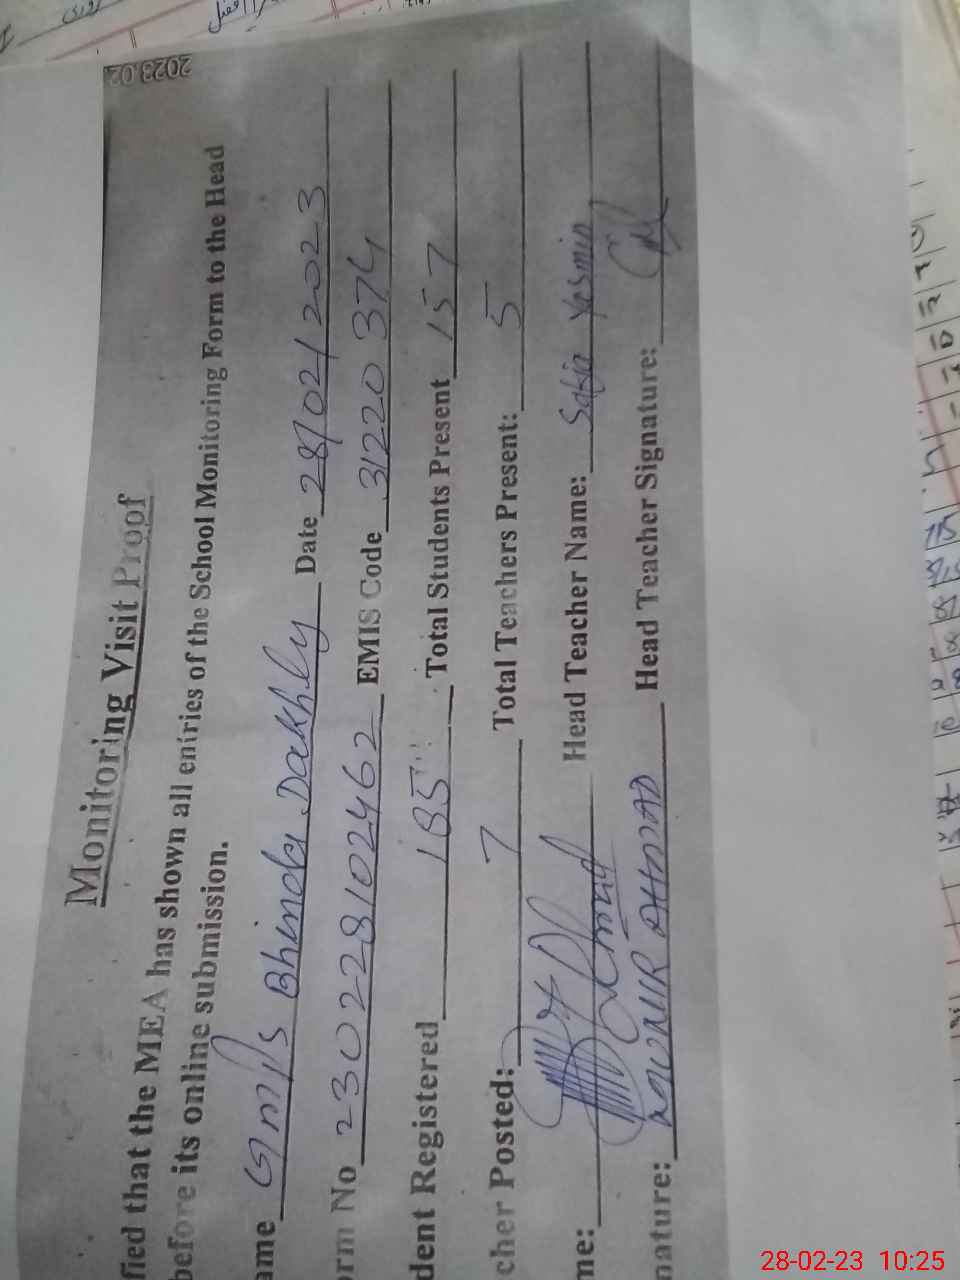 2023.02
Monitoring Visit Proof
fied that the MEA has shown all entries of the School Monitoring Form to the Head
before its online submission.
ame Gmps Bhinda Dakhly Date 28/02/2023
orm No 230228102462 EMIS Code 31220374
dent Registered 185 Total Students Present 157
cher Posted: 7 Total Teachers Present: 5
me: Head Teacher Name: Safia Yasmin
nature: MUNIR AHMAD Head Teacher Signature:
28-02-23 10:25